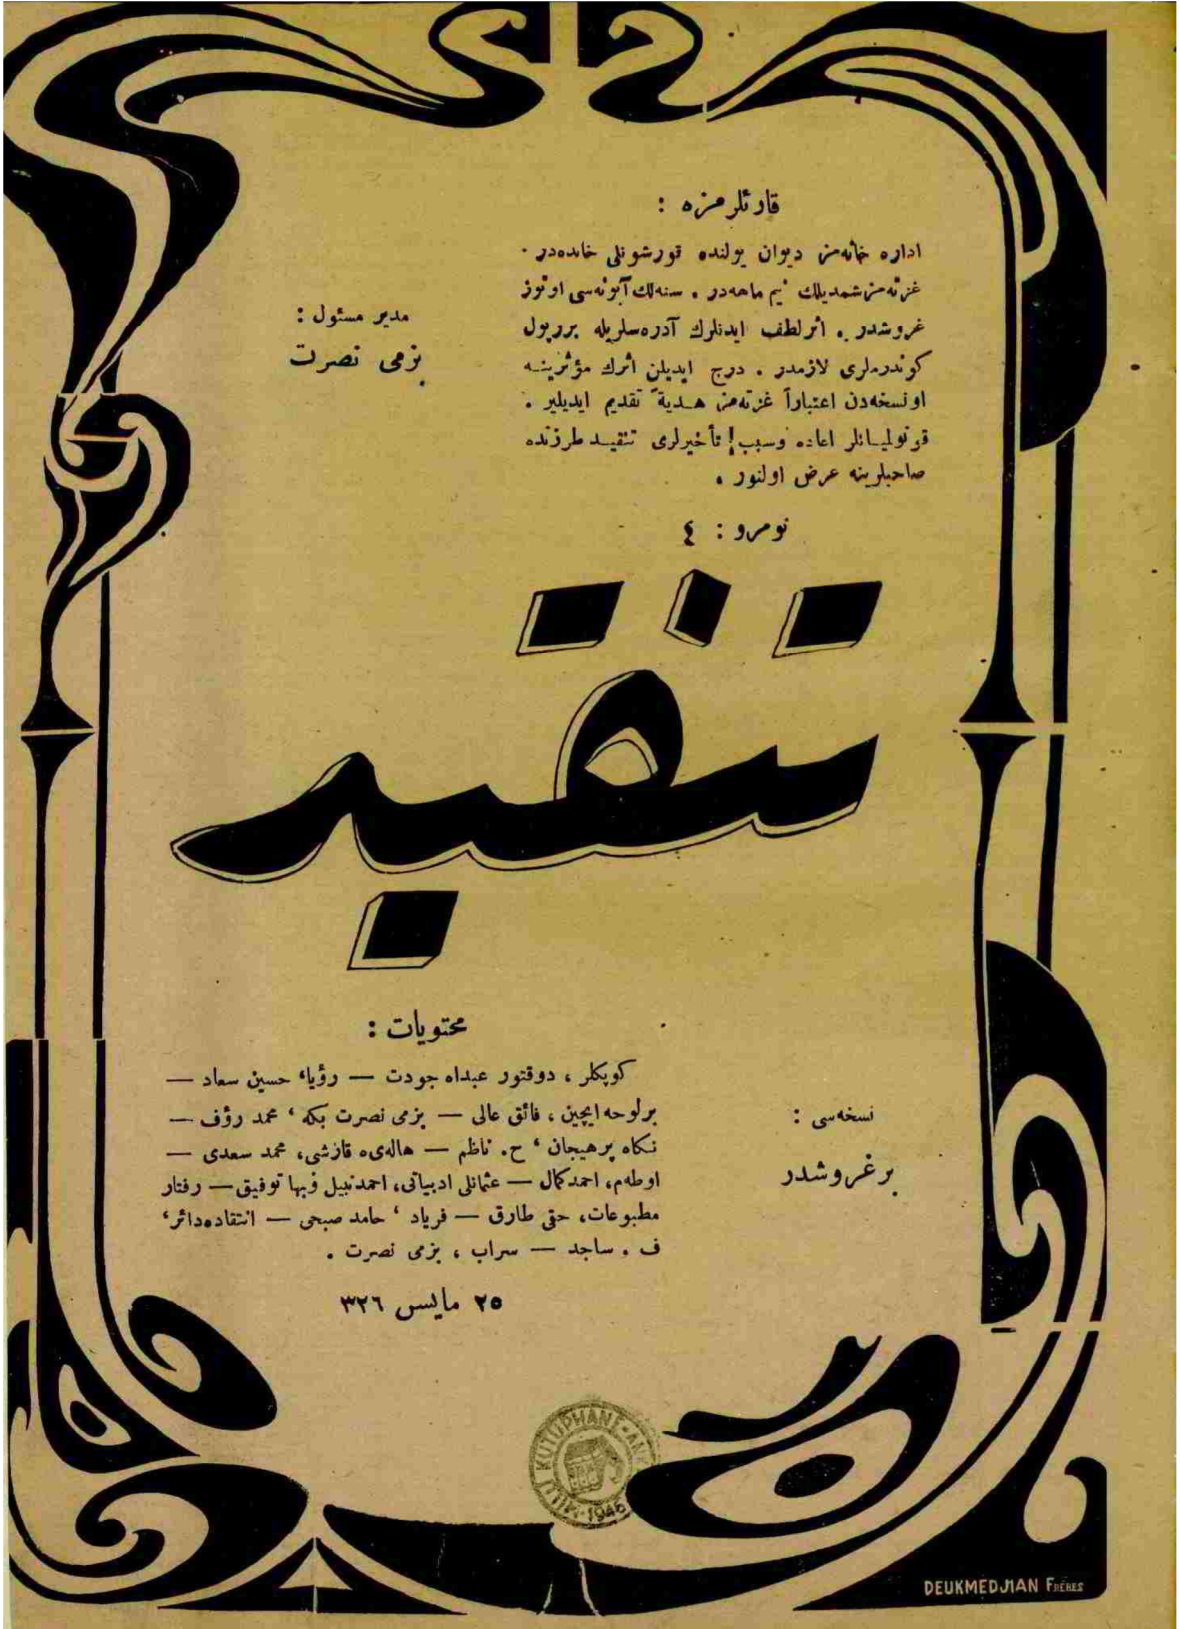 قارئلرمزه :
اداره خانه‌مز دیوان یولنده قورشونلی خانده‌در .
غزته‌مز شمدیلك نیم ماهه‌در . سنه‌لك آبونه‌سی اوتوز
غروشدر . اثر لطف ایدنلرك آدره‌سلریله برر پول
كوندرملری لازمدر . درج ایدیلن اثرك مؤثرینه
او نسخه‌دن اعتباراً غزته‌مز هدیةً تقدیم ایدیلیر .
اعاده وسبب تأخیرلری تنقید طرزنده
صاحبلرینه عرض اولنور .
مدیر مسئول :
بزمی نصرت
نومرو : ٤
تنقید
محتویات :
كوپكلر ، دوقتور عبداه جودت — رؤیا، حسین سعاد —
برلوحه ایچین ، فائق عالی — بزمی نصرت بكه ، محمد رؤف —
نكاه پرهیجان ، ح. ناظم — هاله‌ی قارشی، محمد سعدی —
اوطه‌م، احمد كمال — عثمانلی ادبیاتی، احمد نبیل وبها توفیق — رفتار
مطبوعات، حقی طارق — فریاد ، حامد صبحی — انتقاده‌دائر،
ف . ساجد — سراب ، بزمی نصرت .
٢٥ مایس ٣٢٦
نسخه‌سی :
بر غروشدر
MİLLİ KÜTÜPHANE - ANK
1946
DEUKMEDJIAN FRÈRES